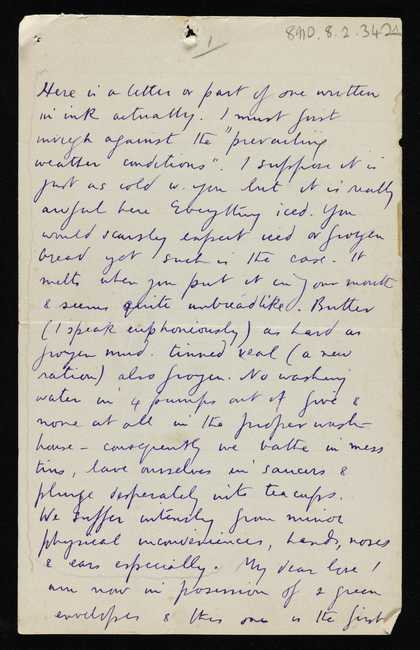 1
8910.8.2.342
Here is a letter or part of one written
in ink actually. I must first
inveigh against the "prevailing
weather conditions". I suppose it is
just as cold w. you but it is really
awful here Everything iced. You
would scarcely expect iced or frozen
bread yet such is the case. It
melts when you put it in your mouth
& seems quite unbreadlike. Butter
(I speak euphoniously) as hard as
frozen mud. tinned veal (a new
ration) also frozen. No washing
water in 4 pumps out of five &
none at all in the proper wash-
house – consequently we bathe in mess
tins, lave ourselves in saucers &
plunge desperately into teacups.
We suffer intensely from minor
physical inconveniences, hands, noses
& ears especially. My dear love I
am now in possession of 2 green
envelopes & this one is the first